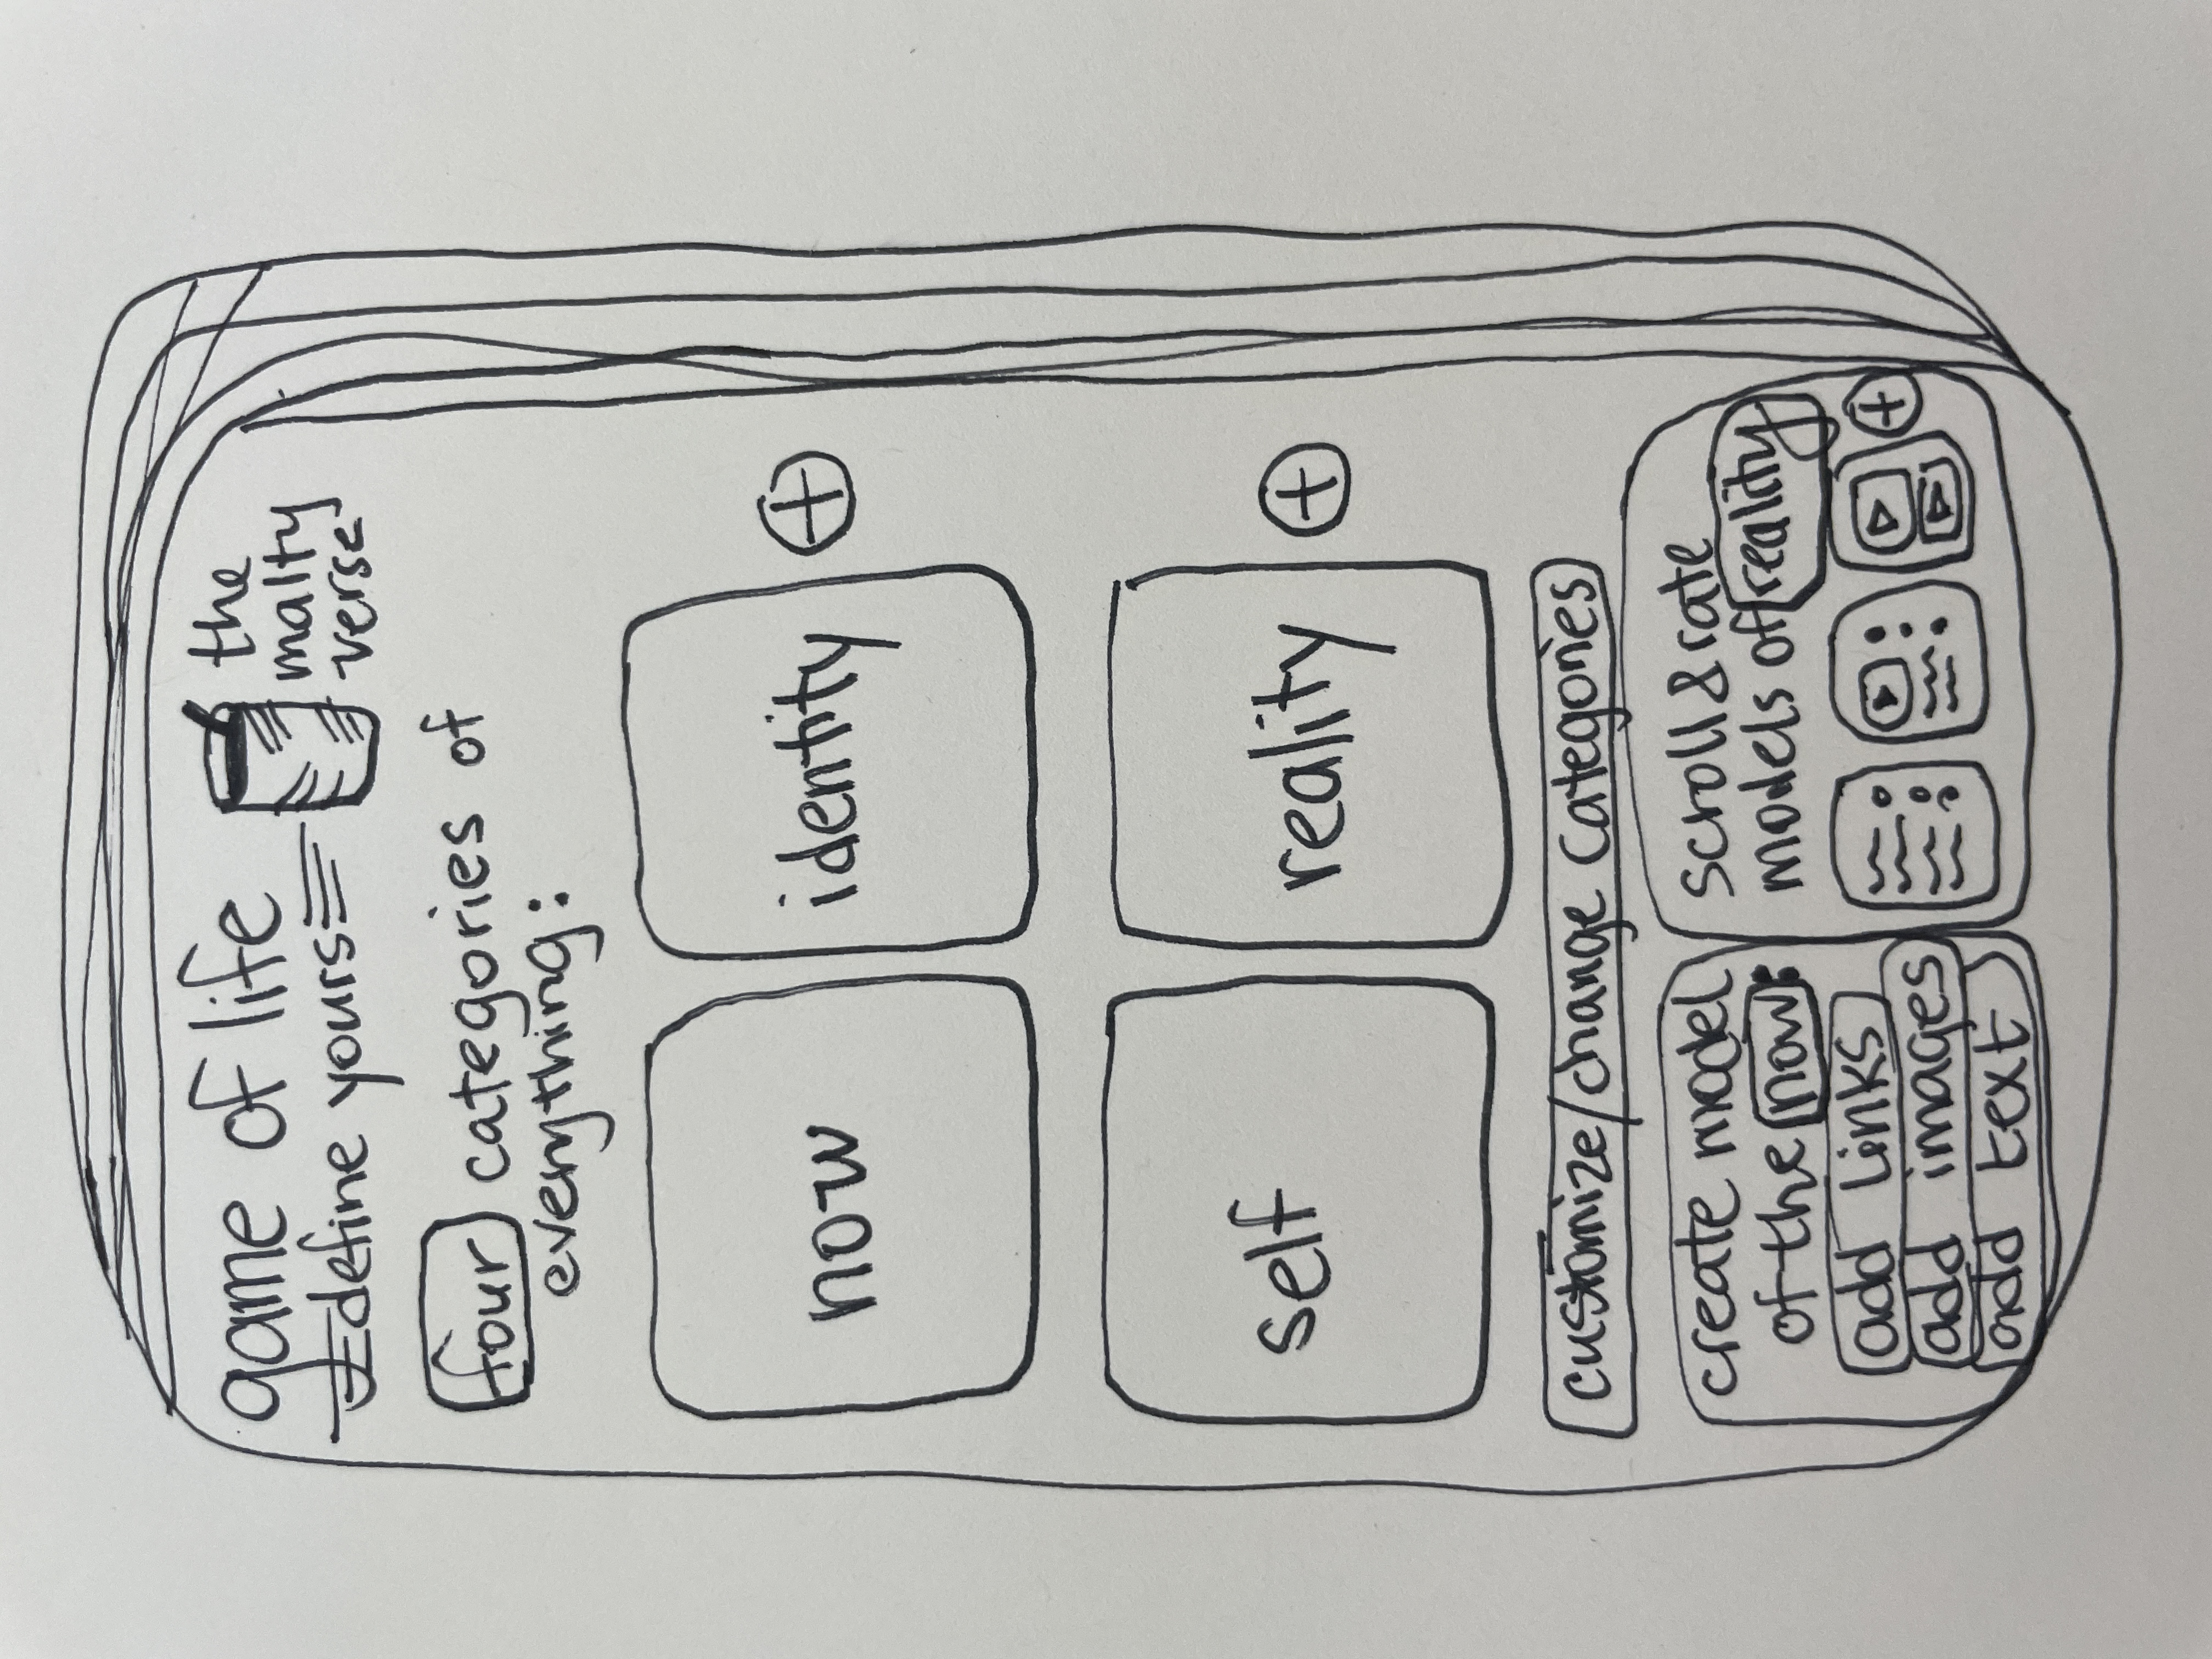 game of life
define yours
the
malty
verse
four categories of
everything:
now
identity
self
reality
customize/change categories
create model
of the now:
add links
add images
add text
scroll & rate
models of reality